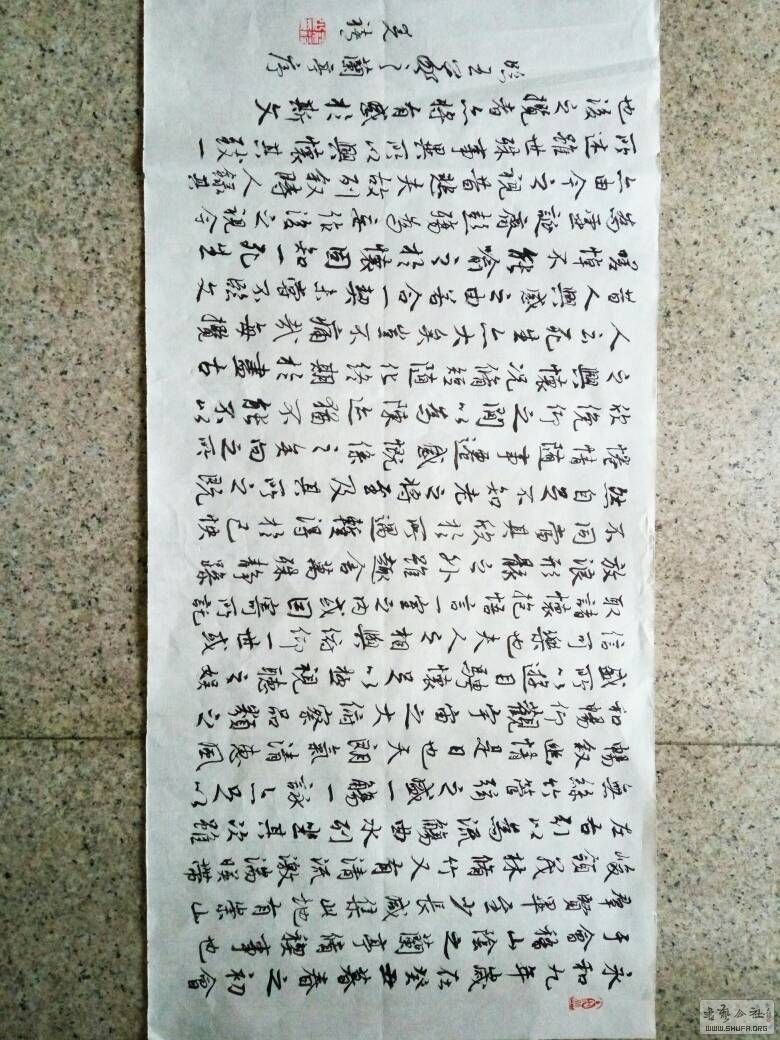 永和九年歲在癸丑暮春之初會
于會稽山陰之蘭亭脩禊事也
羣賢畢至少長咸集此地有崇山
峻領茂林脩竹又有清流激湍暎帶
左右引以為流觴曲水列坐其次雖
無絲竹管弦之盛一觴一詠亦足以
暢敘幽情是日也天朗氣清惠風
和暢仰觀宇宙之大俯察品類之
盛所以遊目騁懷足以極視聽之娛
信可樂也夫人之相與俯仰一世或
取諸懷抱悟言一室之內或因寄所託
放浪形骸之外雖趣舍萬殊靜躁
不同當其欣於所遇暫得於己快
然自足不知老之將至及其所之既
惓情隨事遷感慨係之矣向之所
欣俛仰之間以為陳迹猶不能不以
之興懷況脩短隨化終期於盡古
人云死生亦大矣豈不痛哉每攬
昔人興感之由若合一契未嘗不臨文
嗟悼不能喻之於懷固知一死生
為虛誕齊彭殤為妄作後之視今
亦由今之視昔悲夫故列敘時人錄其
所述雖世殊事異所以興懷其致一
也後之攬者亦將有感於斯文
臨王羲之蘭亭序
WWW.SHUFA.ORG